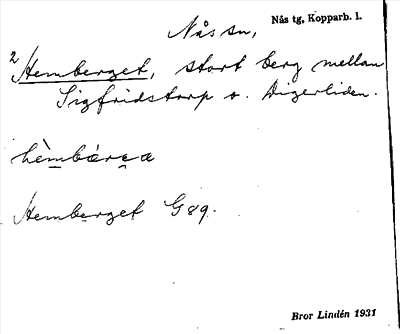 Nås sn,
Nås tg, Kopparb. l.
2 Hemberget, stort berg mellan
Sigfridstorp o. Digerliden.
hèmbæ̀rɛa
Hemberget G89.
Bror Lindén 1931